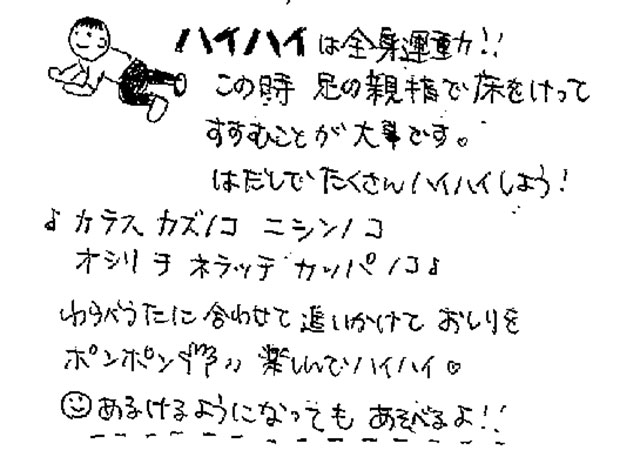 ハイハイは全身運動!!
この時 足の親指で床をけって
すすむことが大事です。
はだしでたくさんハイハイしよう!
♪カラス カズノコ ニシンノコ
オシリヲ ネラッテ カッパノコ♪
わらべうたに合わせて 追いかけて おしりを
ポンポン 楽しんでハイハイ♡
あるけるようになっても あそべるよ!!